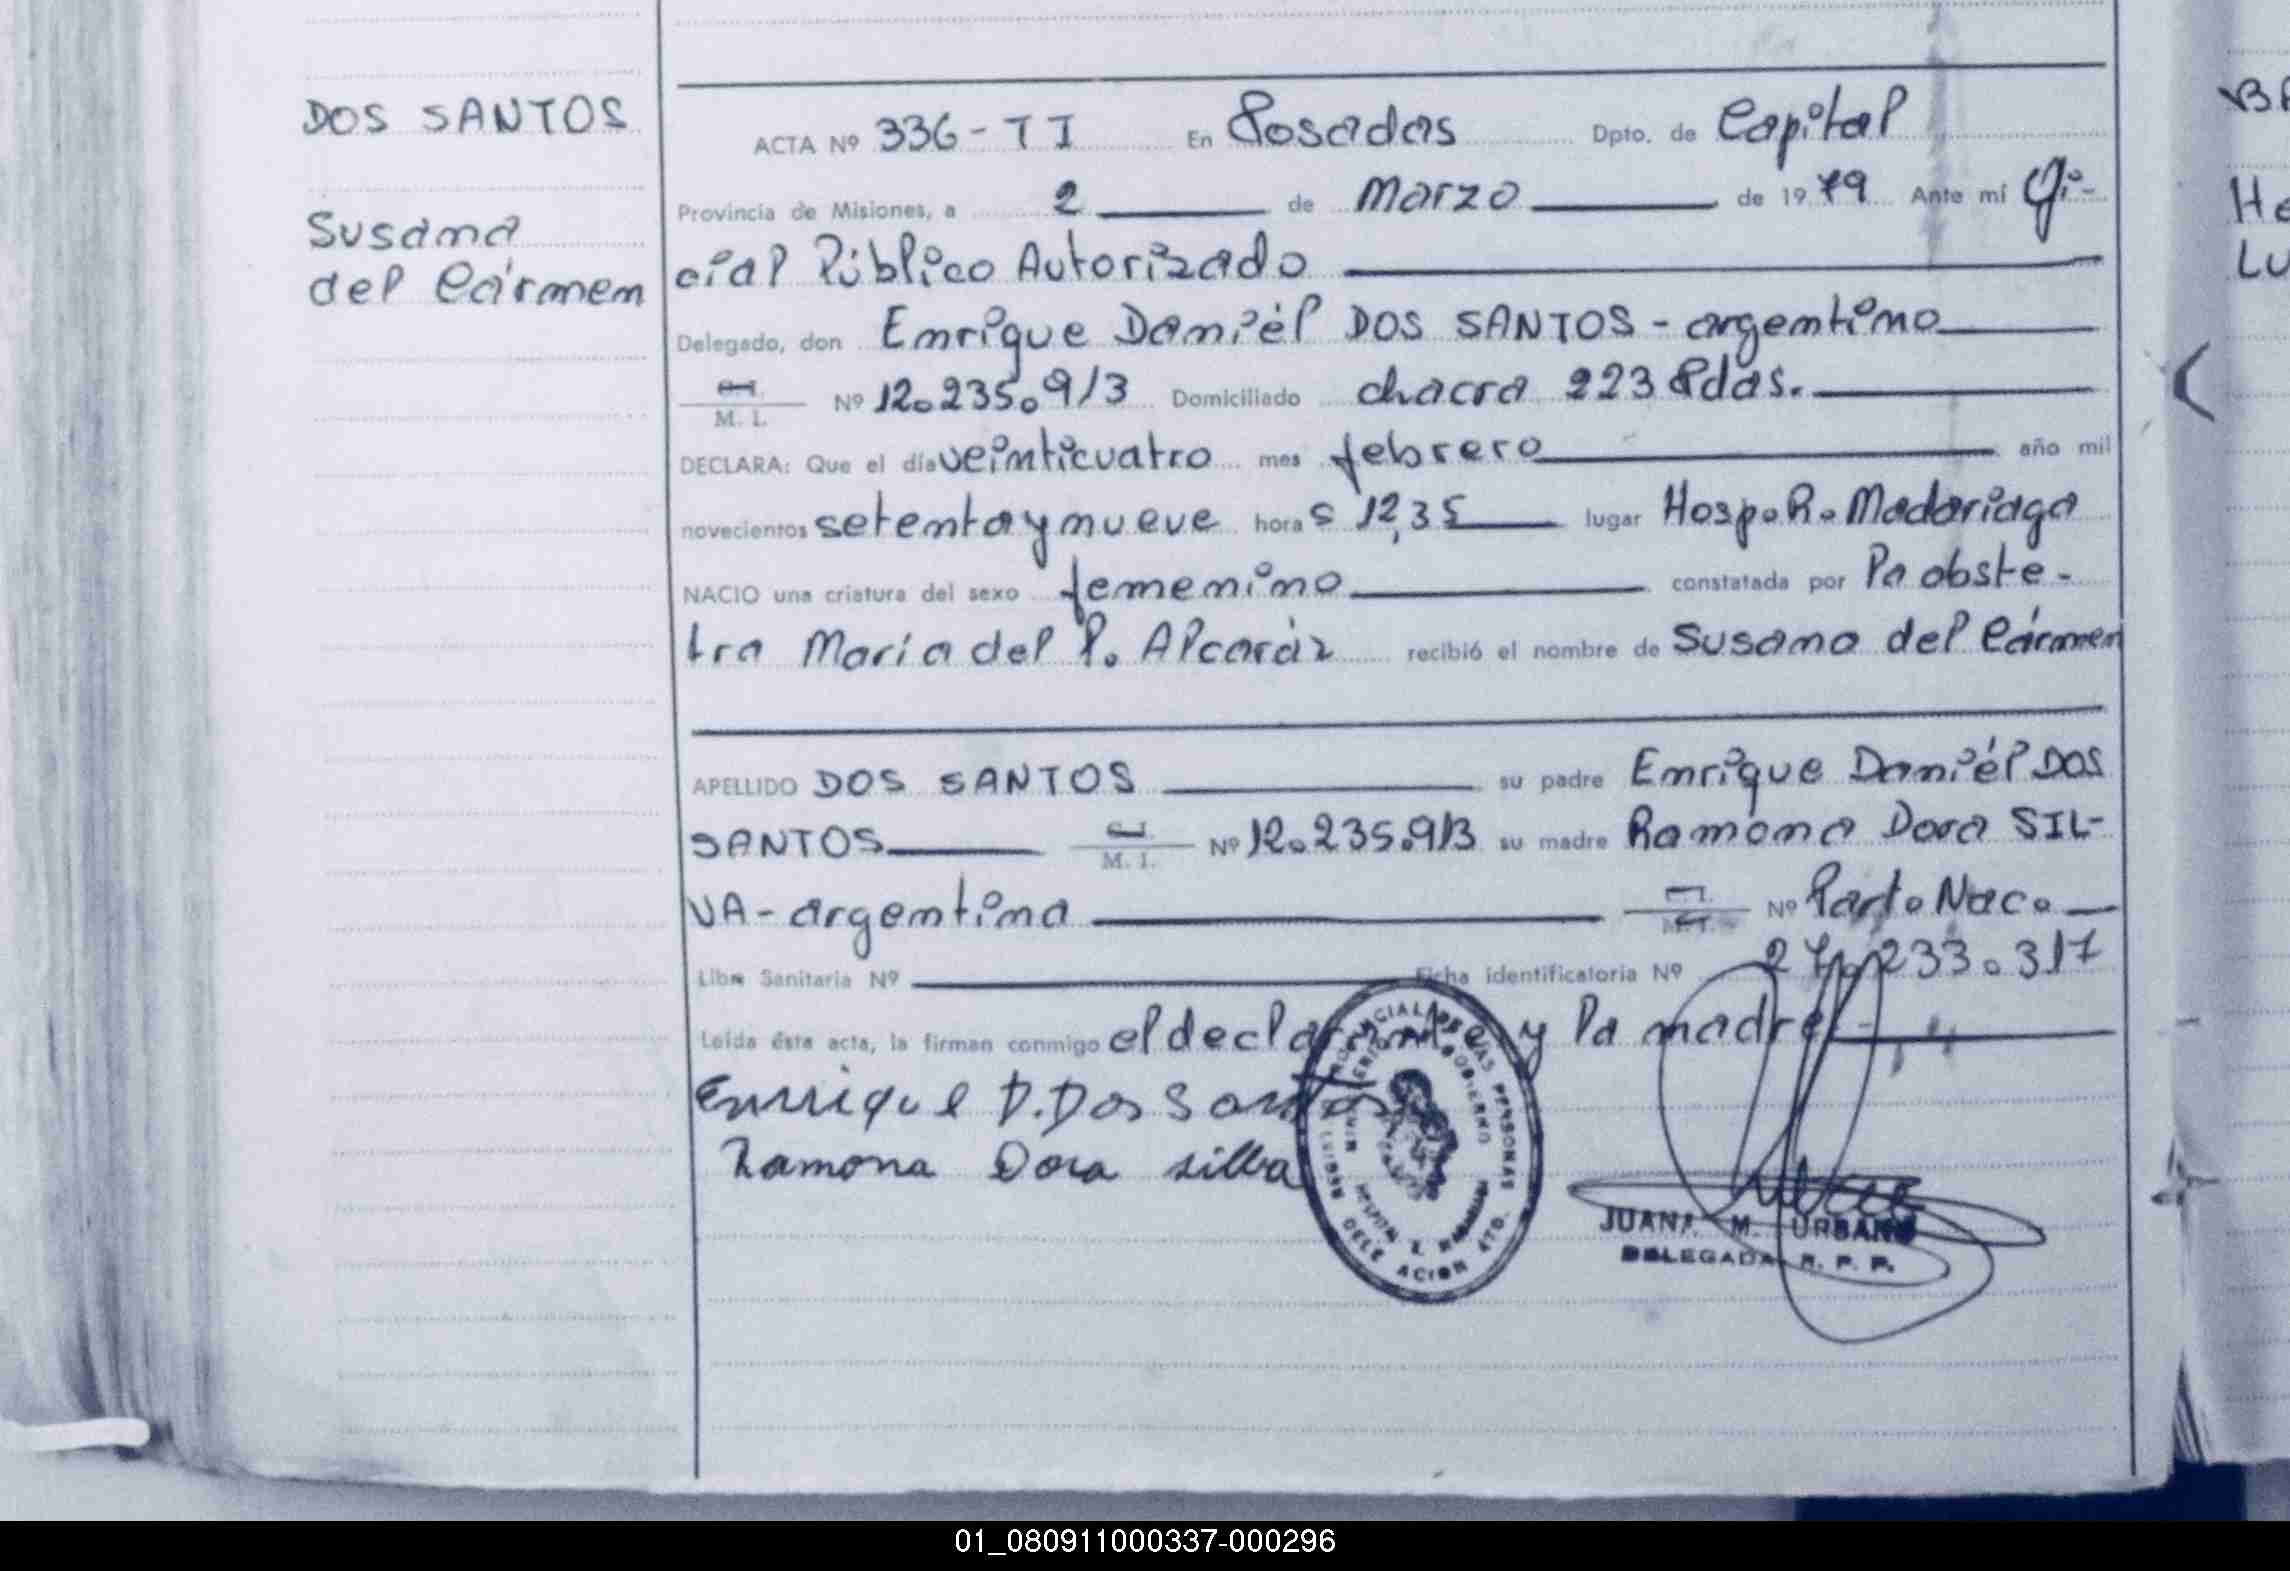 DOS SANTOS
Susana
del Cármen
ACTA Nº 336-TI En Posadas Dpto. de Capital
Provincia de Misiones, a 2 de Marzo de 1979 Ante mí Ofi-
cial Público Autorizado
Delegado, don Enrique Daniél DOS SANTOS - argentino
M. I. Nº 12.235.913 Domiciliado chacra 223 Pdas.
DECLARA: Que el día veinticuatro mes febrero año mil
novecientos setenta y nueve hora s 12,35 lugar Hosp. R. Madariaga
NACIO una criatura del sexo femenino constatada por la obste-
tra María del P. Alcaráz recibió el nombre de Susana del Cármen
APELLIDO DOS SANTOS su padre Enrique Daniél DOS
SANTOS M. I. Nº 12.235.913 su madre Ramona Dora SIL-
VA - argentina Nº Part. Nac.
Libr Sanitaria Nº Ficha identificatoria Nº 27.233.317
Leída ésta acta, la firman conmigo el declarante y la madre
Enrique D. Dos Santos
Ramona Dora silba
JUANA M. URBANO
DELEGADA R. P. P.
DELEGACION 4TO.
BA
He
Lu
01_080911000337-000296